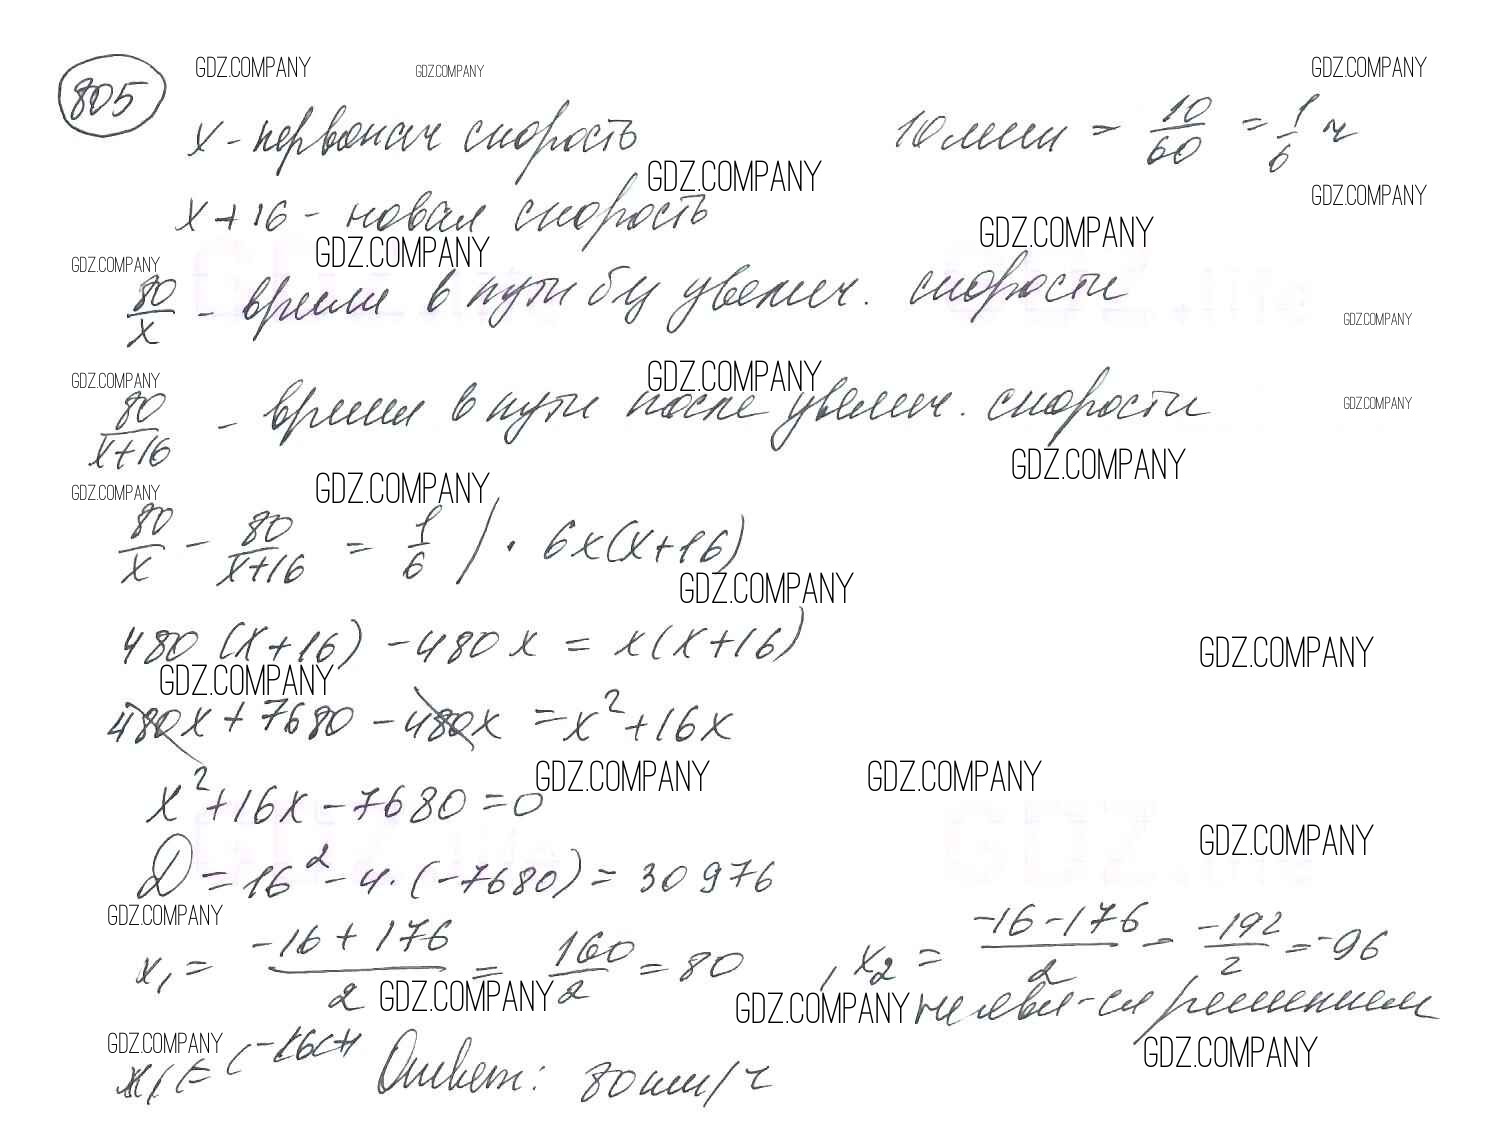 805
GDZ.COMPANY GDZ.COMPANY GDZ.COMPANY
x - первонач скорость 10 мин = 10/60 = 1/6 ч
GDZ.COMPANY GDZ.COMPANY
x + 16 - новая скорость
GDZ.COMPANY GDZ.COMPANY GDZ.COMPANY
80/x - время в пути без увелич. скорости
GDZ.COMPANY
GDZ.COMPANY GDZ.COMPANY
80/(x+16) - время в пути после увелич. скорости
GDZ.COMPANY
GDZ.COMPANY
GDZ.COMPANY GDZ.COMPANY
80/x - 80/(x+16) = 1/6 | · 6x(x+16)
GDZ.COMPANY
480(x+16) - 480x = x(x+16)
GDZ.COMPANY GDZ.COMPANY
480x + 7680 - 480x = x² + 16x
GDZ.COMPANY GDZ.COMPANY
x² + 16x - 7680 = 0
GDZ.COMPANY
D = 16² - 4·(-7680) = 30976
GDZ.COMPANY
x₁ = (-16 + 176)/2 = 160/2 = 80, x₂ = (-16 - 176)/2 = -192/2 = -96
GDZ.COMPANY GDZ.COMPANY не явл-ся решением
GDZ.COMPANY GDZ.COMPANY
Ответ: 80 км/ч